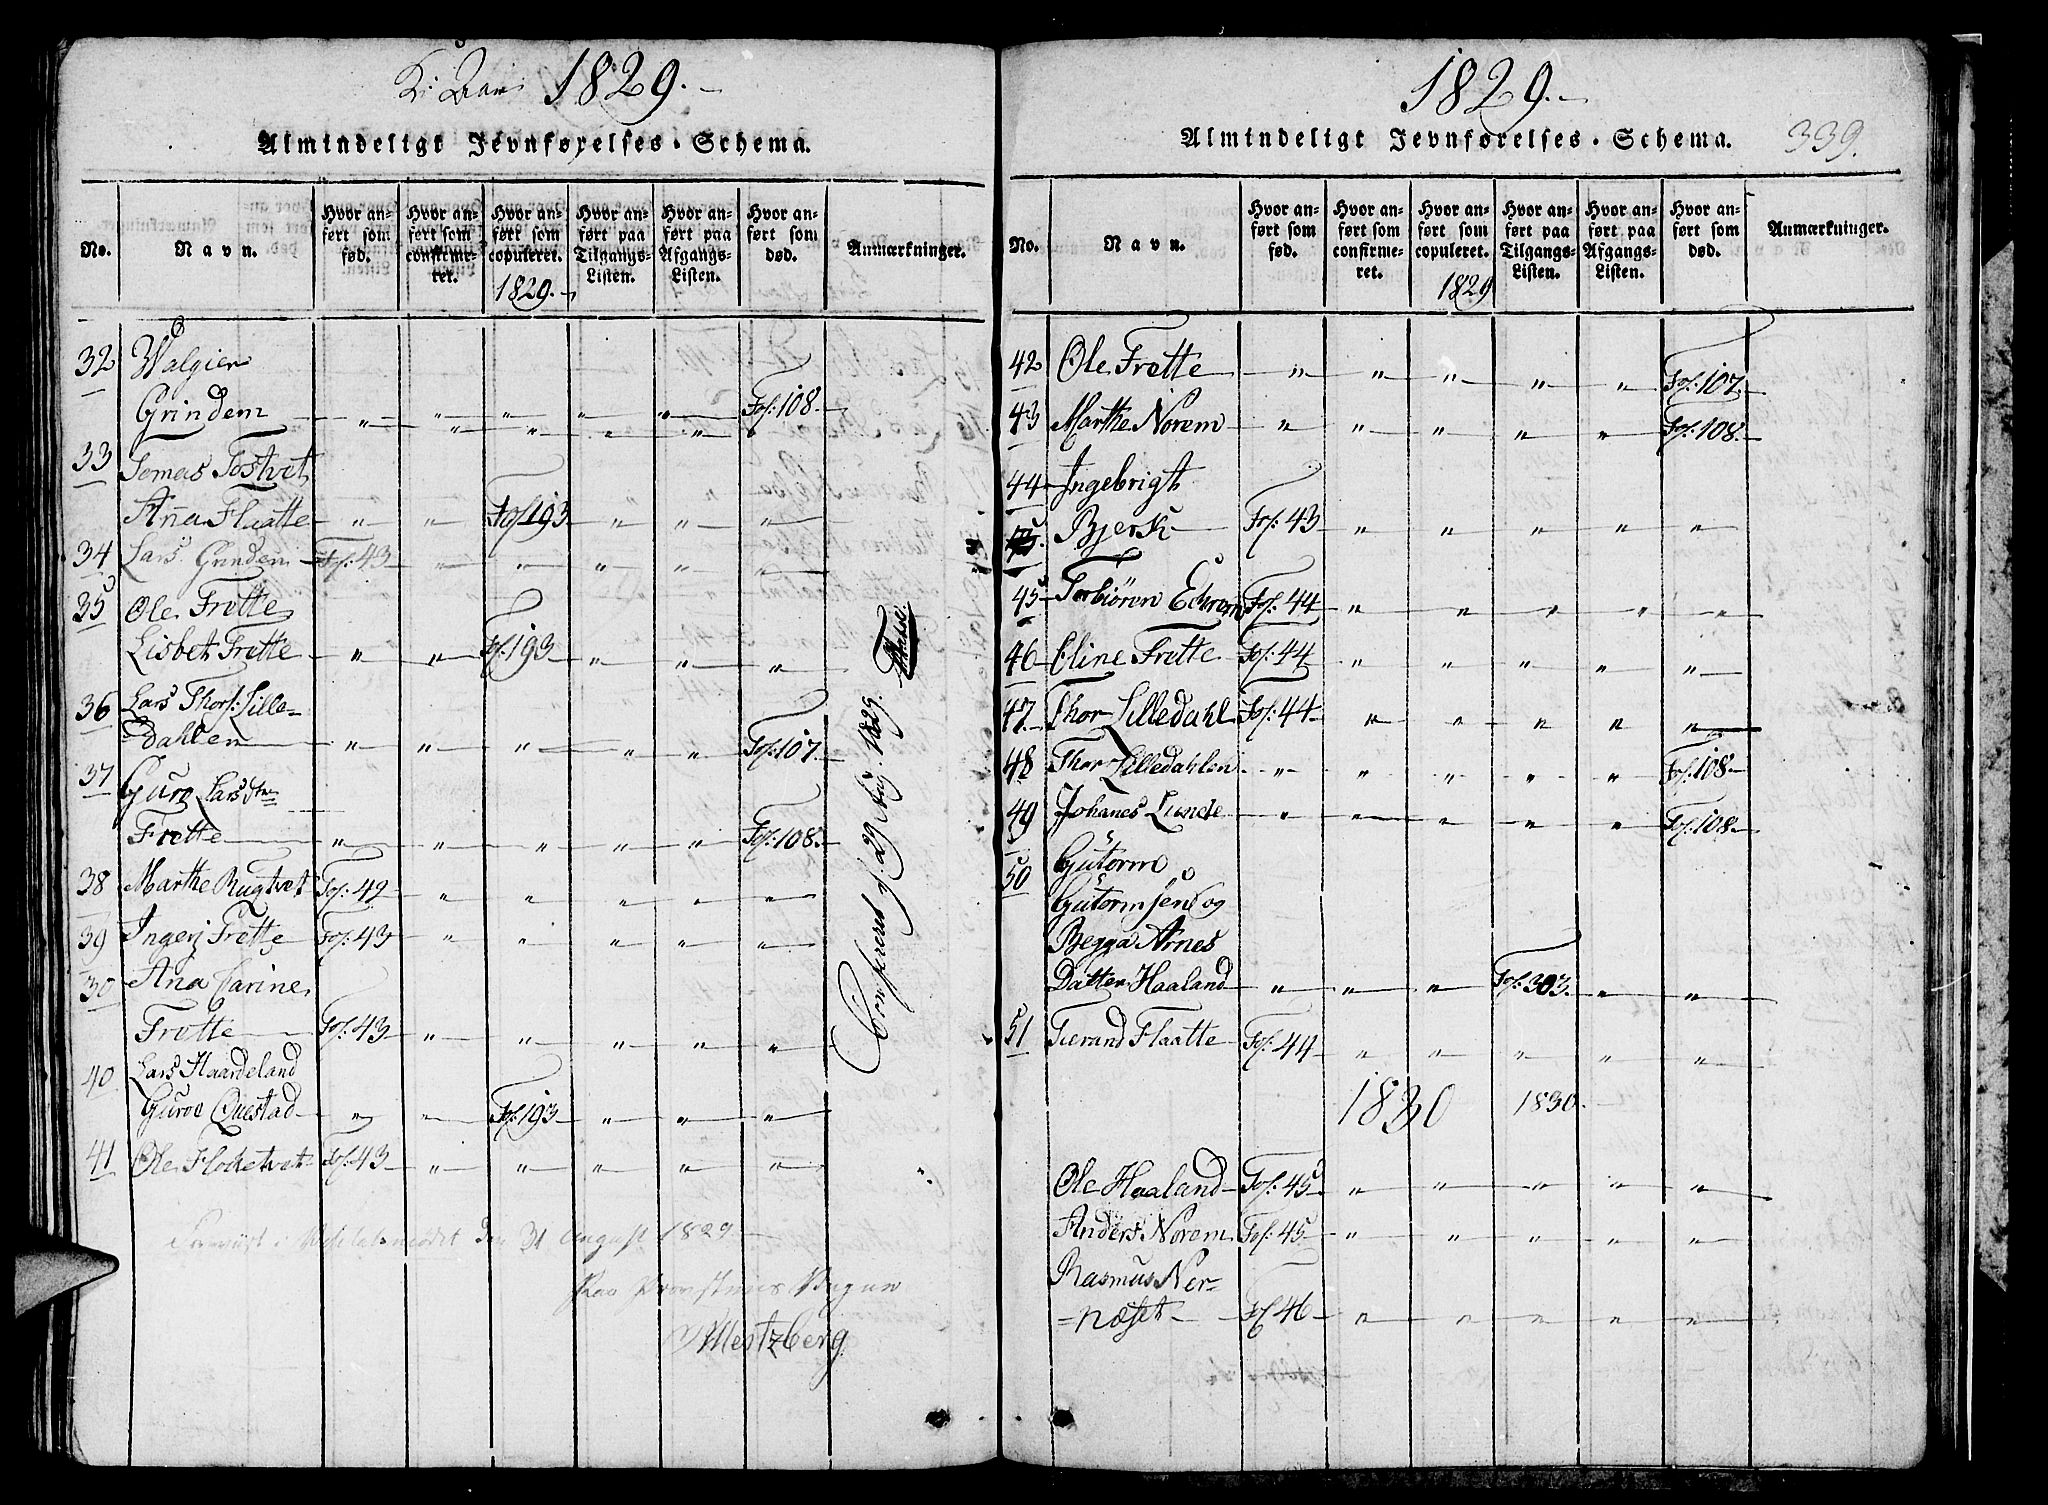 1829.
Almindeligt Jevnførelses-Schema.
No.
Navn.
Hvor anført som fød.
Hvor anført som confirmeret.
Hvor anført som copuleret.
Hvor anført paa Tilgangs-Listen.
Hvor anført paa Afgangs-Listen.
Hvor anført som død.
Anmærkninger.
1829.
32 Walgier
Grindem " " " " " Fol: 108.
33 Tomas Tostvet
Anna Flaatte " " Fol 193 " " "
34 Lars Grindem Fol: 43 " " " " "
35 Ole Frette
Lisbet Frette " " Fol. 193 " " "
36 Lars Thors: Lille-
dahlen " " " " " Fol: 107.
37 Guro Lars
Frette " " " " " Fol: 108.
38 Marthe Rugtvet Fol: 42 " " " " "
39 Ingeri Frette Fol: 43 " " " " "
30 Ana Carine
Frette Fol: 43 " " " " "
40 Lars Haardeland
Guroe Questad " " Fol. 193 " " "
41 Ole Floketvet Fol. 43 " " " " "
Confereret d. 29 Aug. 1829.
den 31 August 1829
Mestzberg
1829.
Almindeligt Jevnførelses-Schema.
339.
No.
Navn.
Hvor anført som fød.
Hvor anført som confirmeret.
Hvor anført som copuleret.
Hvor anført paa Tilgangs-Listen.
Hvor anført paa Afgangs-Listen.
Hvor anført som død.
Anmærkninger.
1829
42 Ole Frette " " " " " Fol: 107.
43 Marthe Norem " " " " " Fol: 108.
44 Ingebrigt
Bjersk Fol: 43 " " " " "
45 Torbiören Echrem Fol. 44 " " " " "
46 Eline Frette Fol: 44 " " " " "
47 Thor Lilledahl Fol: 44 " " " " "
48 Thor Lilledahlen " " " " " Fol. 108.
49 Johanes Lunde " " " " " Fol. 108.
50 Gutorm
Gutormsen og
Begga Arnes
Datter Haaland " " " Fol. 303. " "
51 Tierand Flaatte Fol: 44 " " " " "
1830 1830.
Ole Haaland Fol: 45 " " " " "
Anders Norem Fol: 45 " " " " "
Rasmus Ner-
næset Fol 46 " " " " "